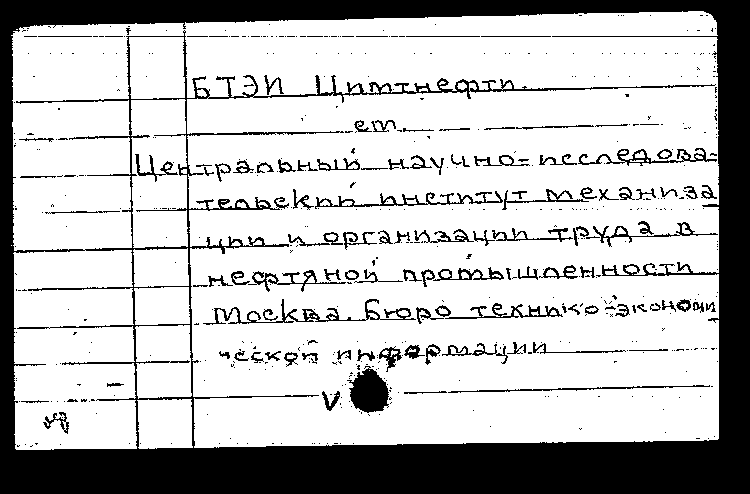 БТЭИ Цимтнефти.
ст.
Центральный научно=исследова=
тельский институт механиза
ции и организации труда в
нефтяной промышленности
Москва. Бюро технико-экономи
ческой информации
V